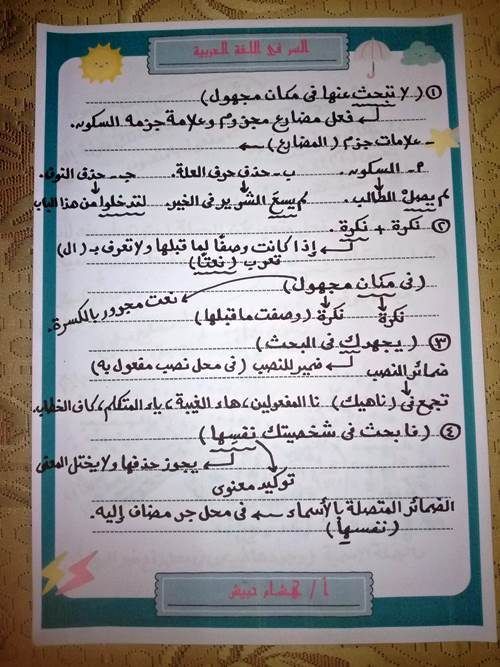 السر في اللغة العربية
① ( لا تبحث عنها في مكان مجهول )
فعل مضارع مجزوم وعلامة جزمه السكون.
- علامات جزم ( المضارع )
أ- السكون. ب- حذف حرف العلة. جـ- حذف النون.
لم يصل الطالب. لم يسعَ الشرير في الخير. لا تدخلوا من هذا الباب
② نكرة + نكرة.
إذا كانت وصفًا لما قبلها ولا تعرف بـ ( ال )
تعرب ( نعتًا )
( في مكان مجهول ) نعت مجرور بالكسرة.
نكرة نكرة ( وصفت ما قبلها )
③ ( يجهدك في البحث )
ضمائر النصب ضمير للنصب ( في محل نصب مفعول به )
تجمع في ( ناهيك ) نا المفعولين ، هاء الغيبة ، ياء المتكلم ، كاف الخطاب.
④ ( فابحث في شخصيتك نفسِها )
يجوز حذفها ولا يختل المعنى
توكيد معنوي
الضمائر المتصلة بالأسماء في محل جر مضاف إليه.
( نفسِها )
أ / هشام حبيش